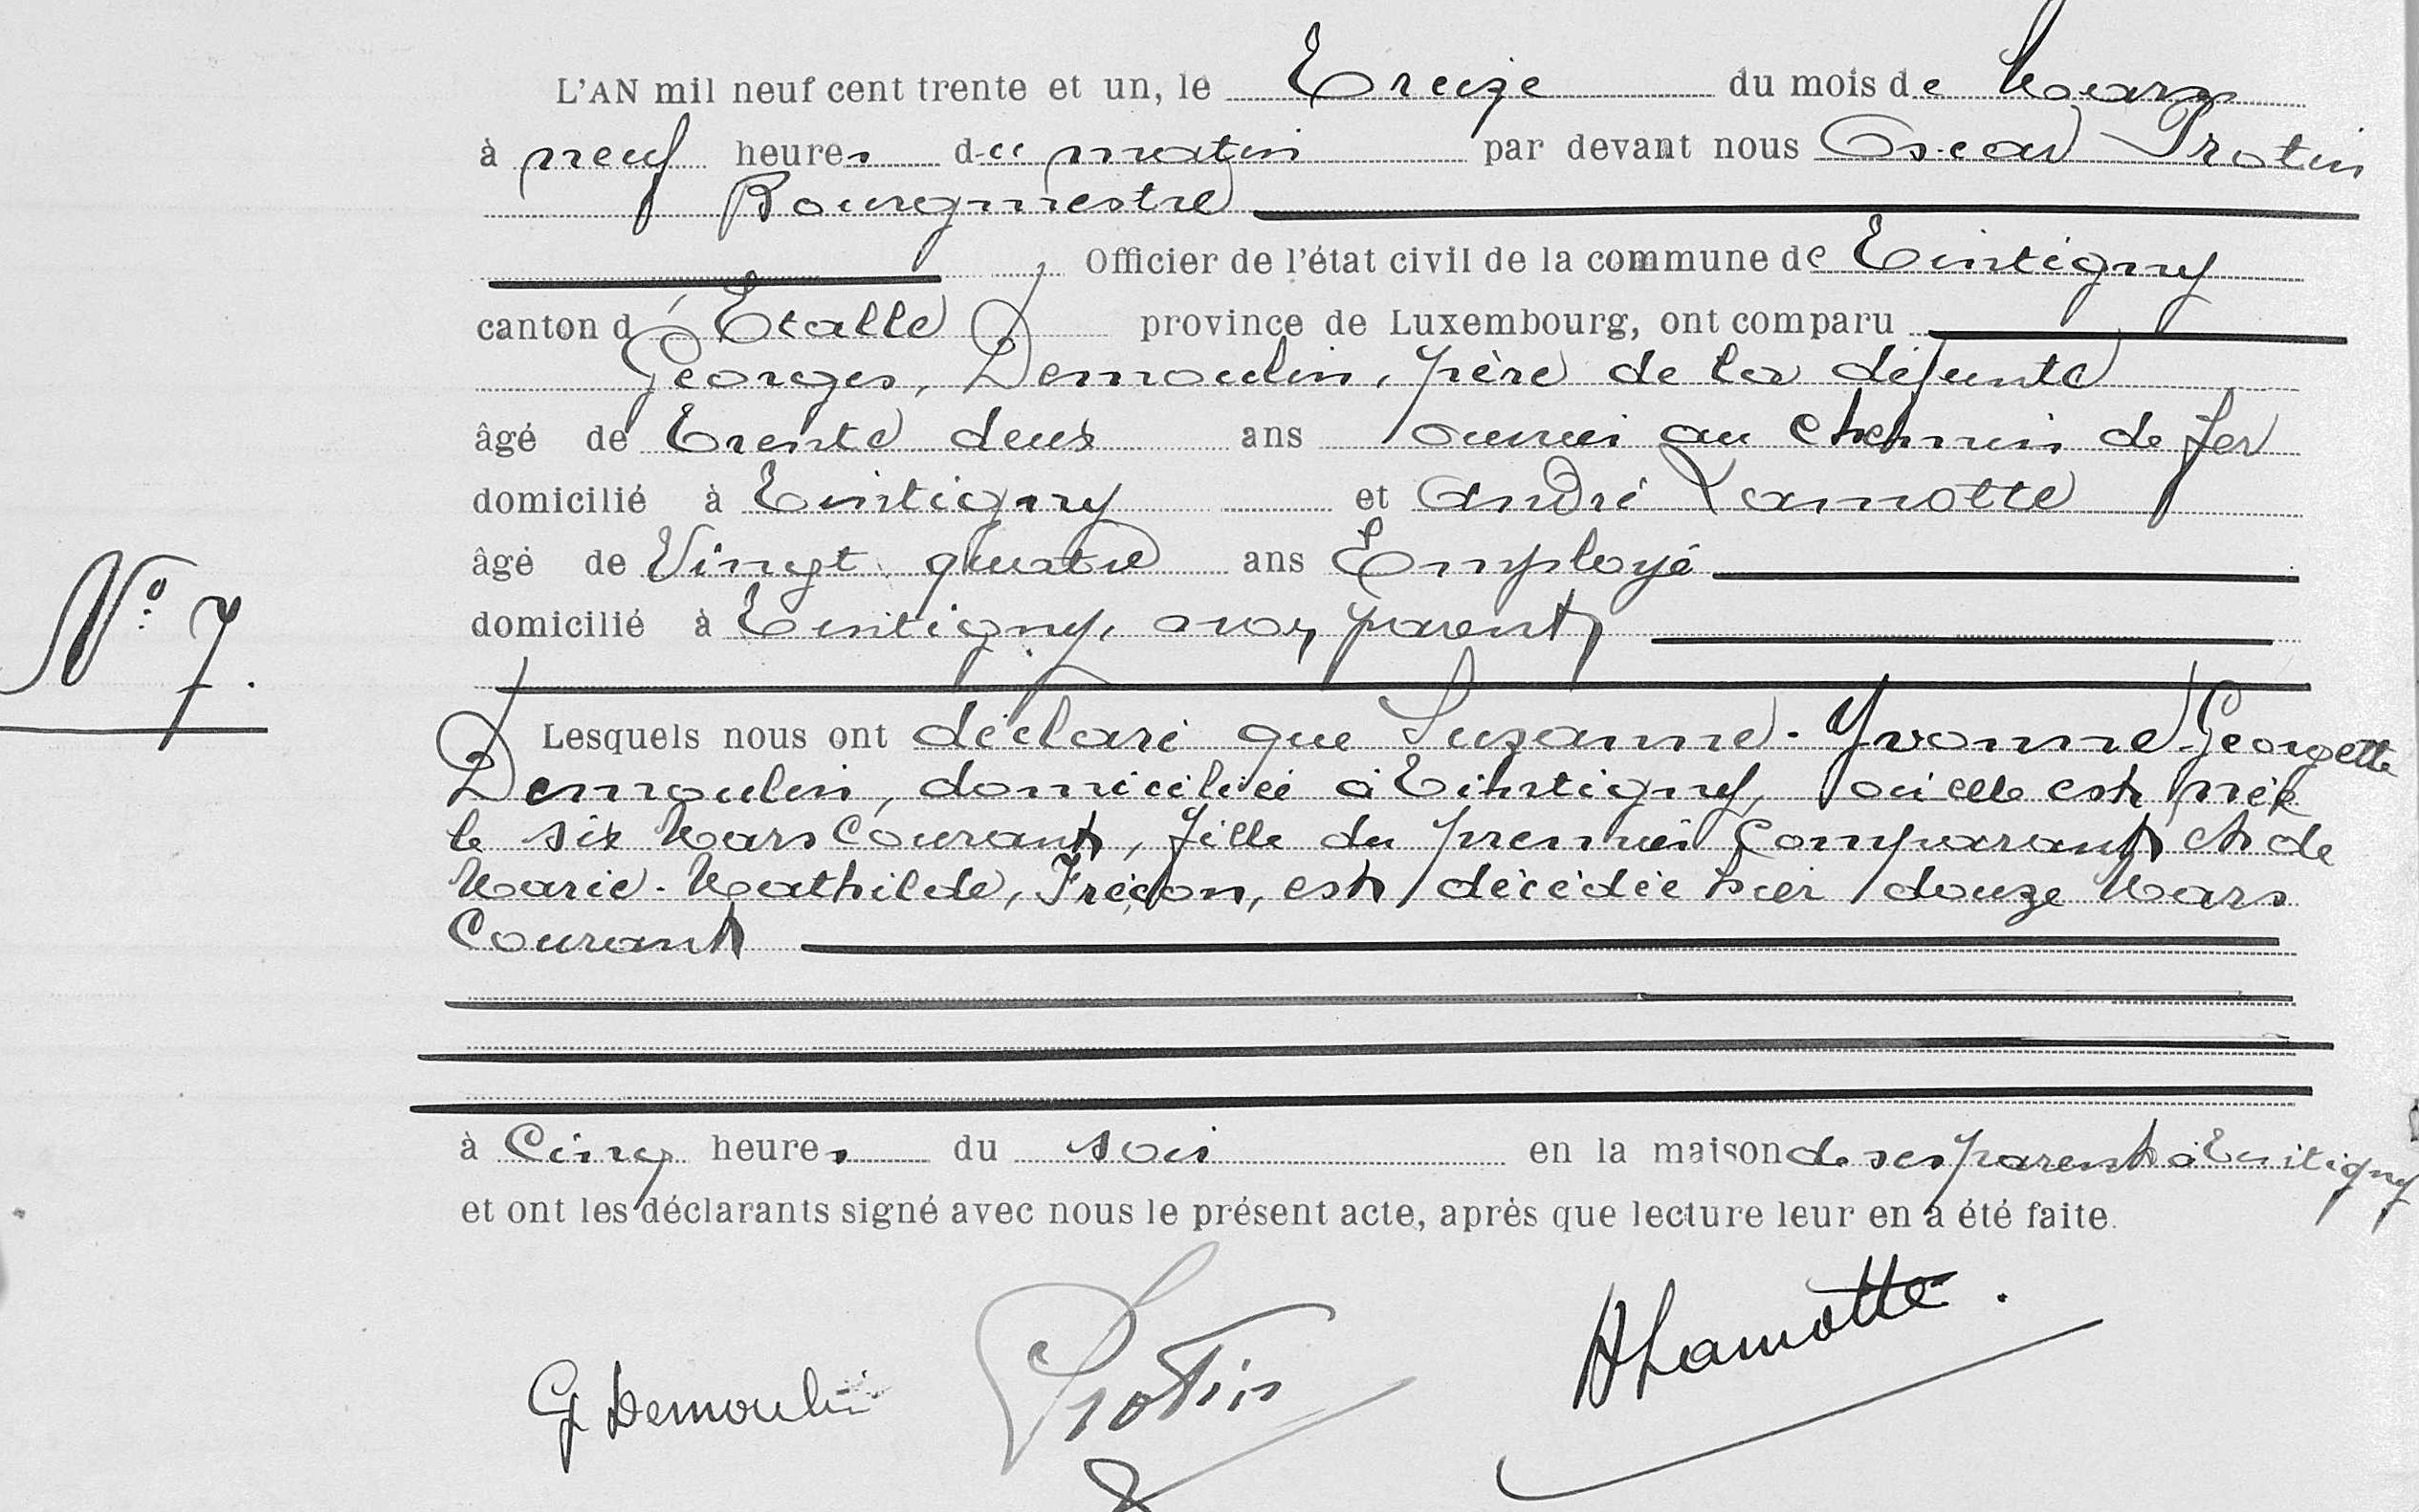 L'AN mil neuf cent trente et un, le Treize du mois de Mars
à neuf heures du matin par devant nous Oscar Protin
Bourgmestre
Officier de l'état civil de la commune de Tintigny
canton d'Etalle province de Luxembourg, ont comparu
Georges, Demoulin, père de la défunte
âgé de Trente deux ans ouvrier au chemin de fer
domicilié à Tintigny et André Lamotte
âgé de Vingt quatre ans Employé
domicilié à Tintigny, non parent
N° 7.
Lesquels nous ont déclaré que Suzanne-Yvonne-Georgette
Demoulin, domiciliée à Tintigny, où elle est née
le six Mars Courant, fille du premier Comparant et de
Marie-Mathilde, Freçon, est décédée hier douze Mars
Courant
à Cinq heures du soir en la maison de ses parents à Tintigny
et ont les déclarants signé avec nous le présent acte, après que lecture leur en a été faite.
G Demoulin Protin ALamotte.